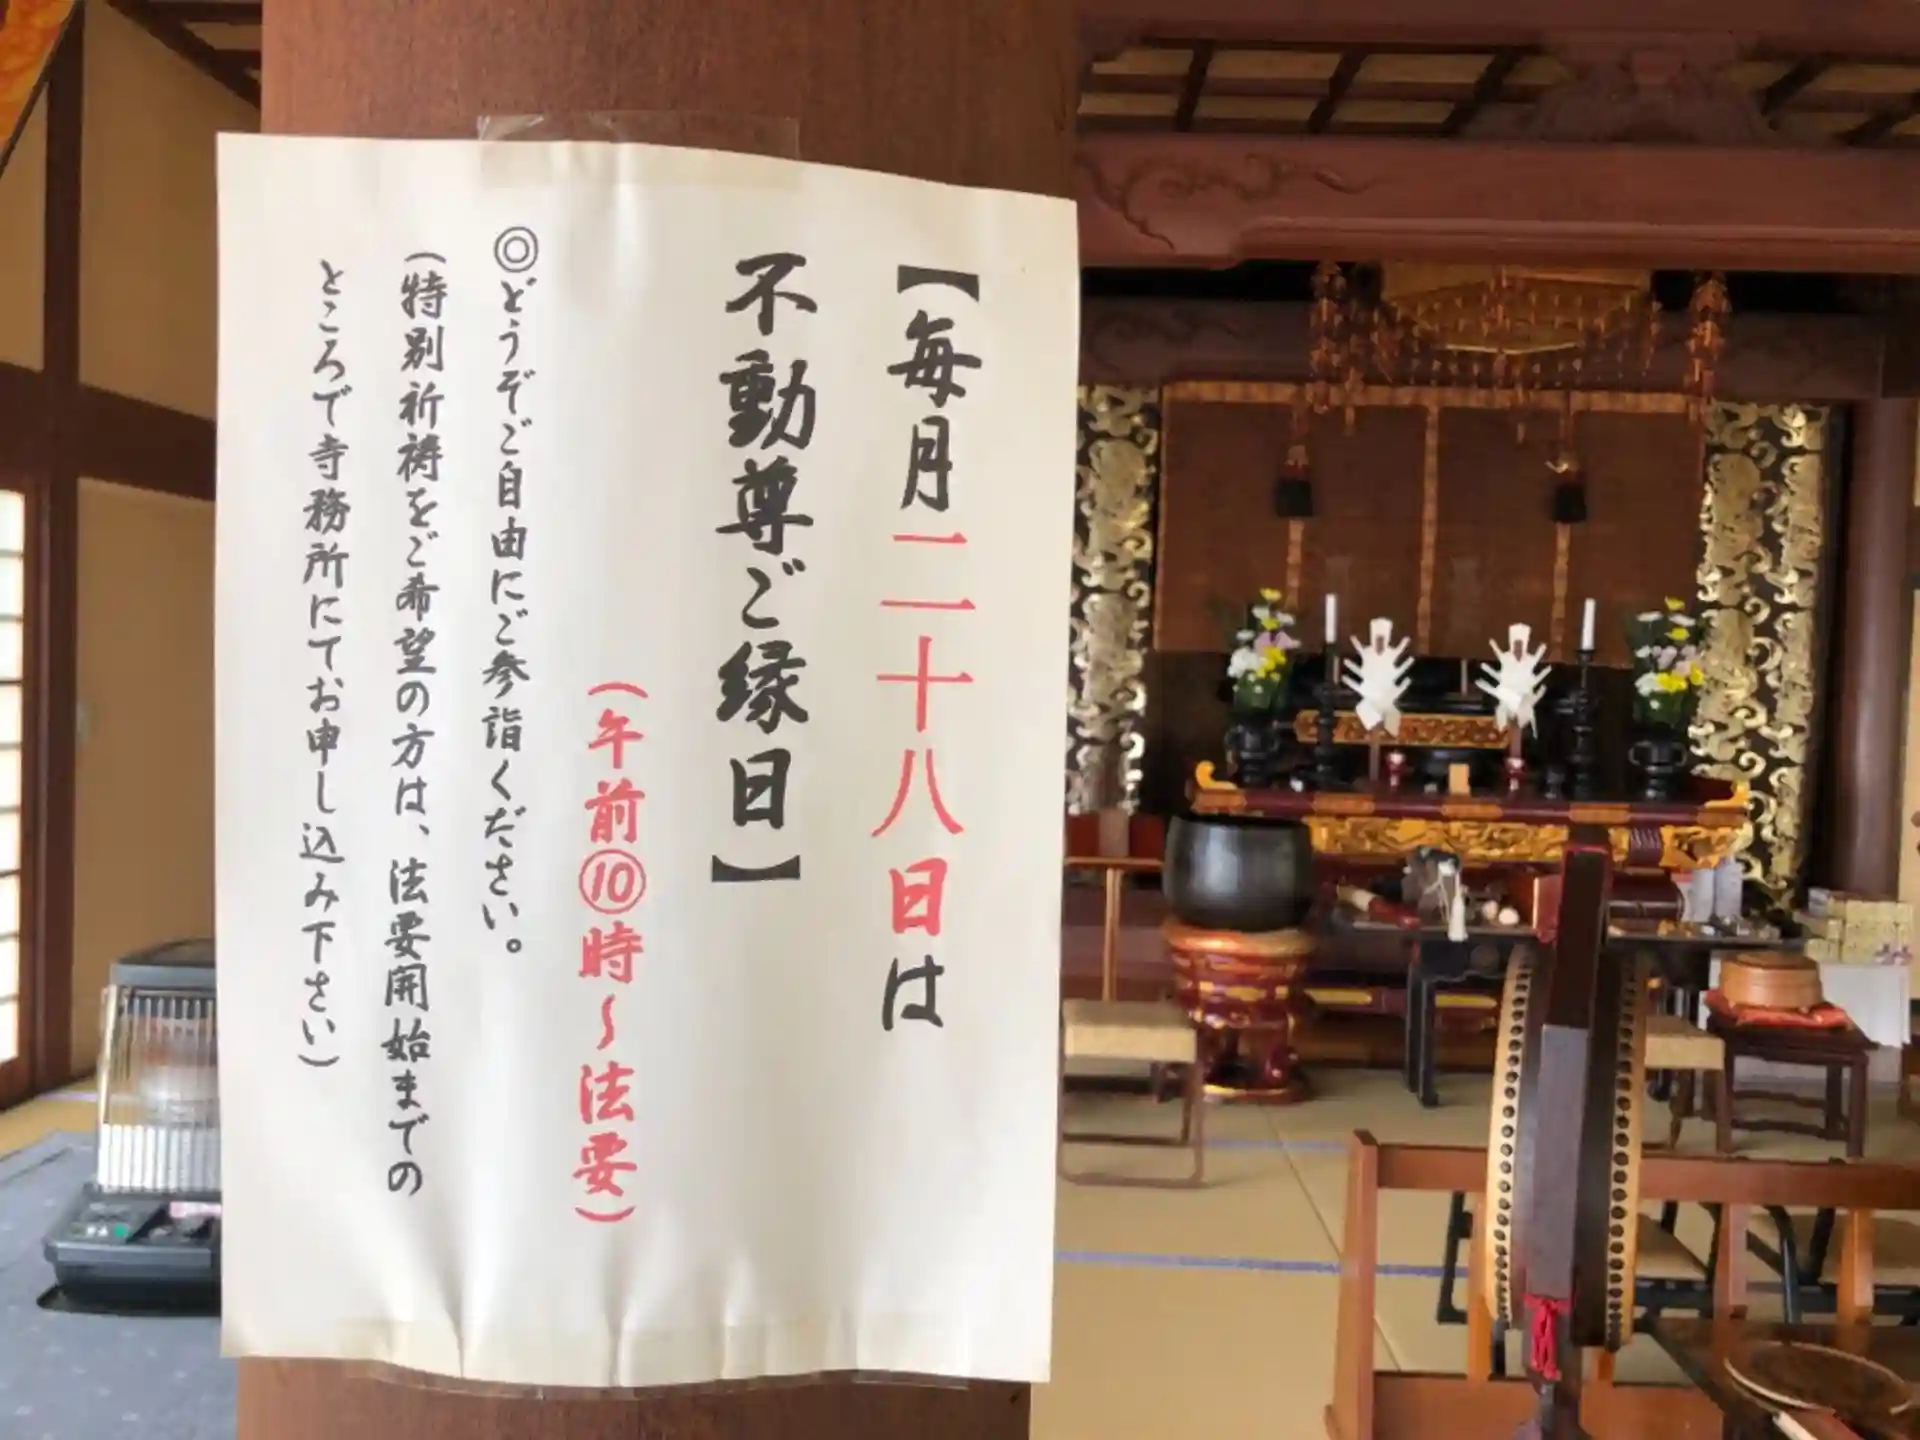 【毎月二十八日は
不動尊ご縁日】
(午前⑩時〜法要)
◎どうぞご自由にご参詣ください。
(特別祈祷をご希望の方は、法要開始までの
ところで寺務所にてお申し込み下さい)